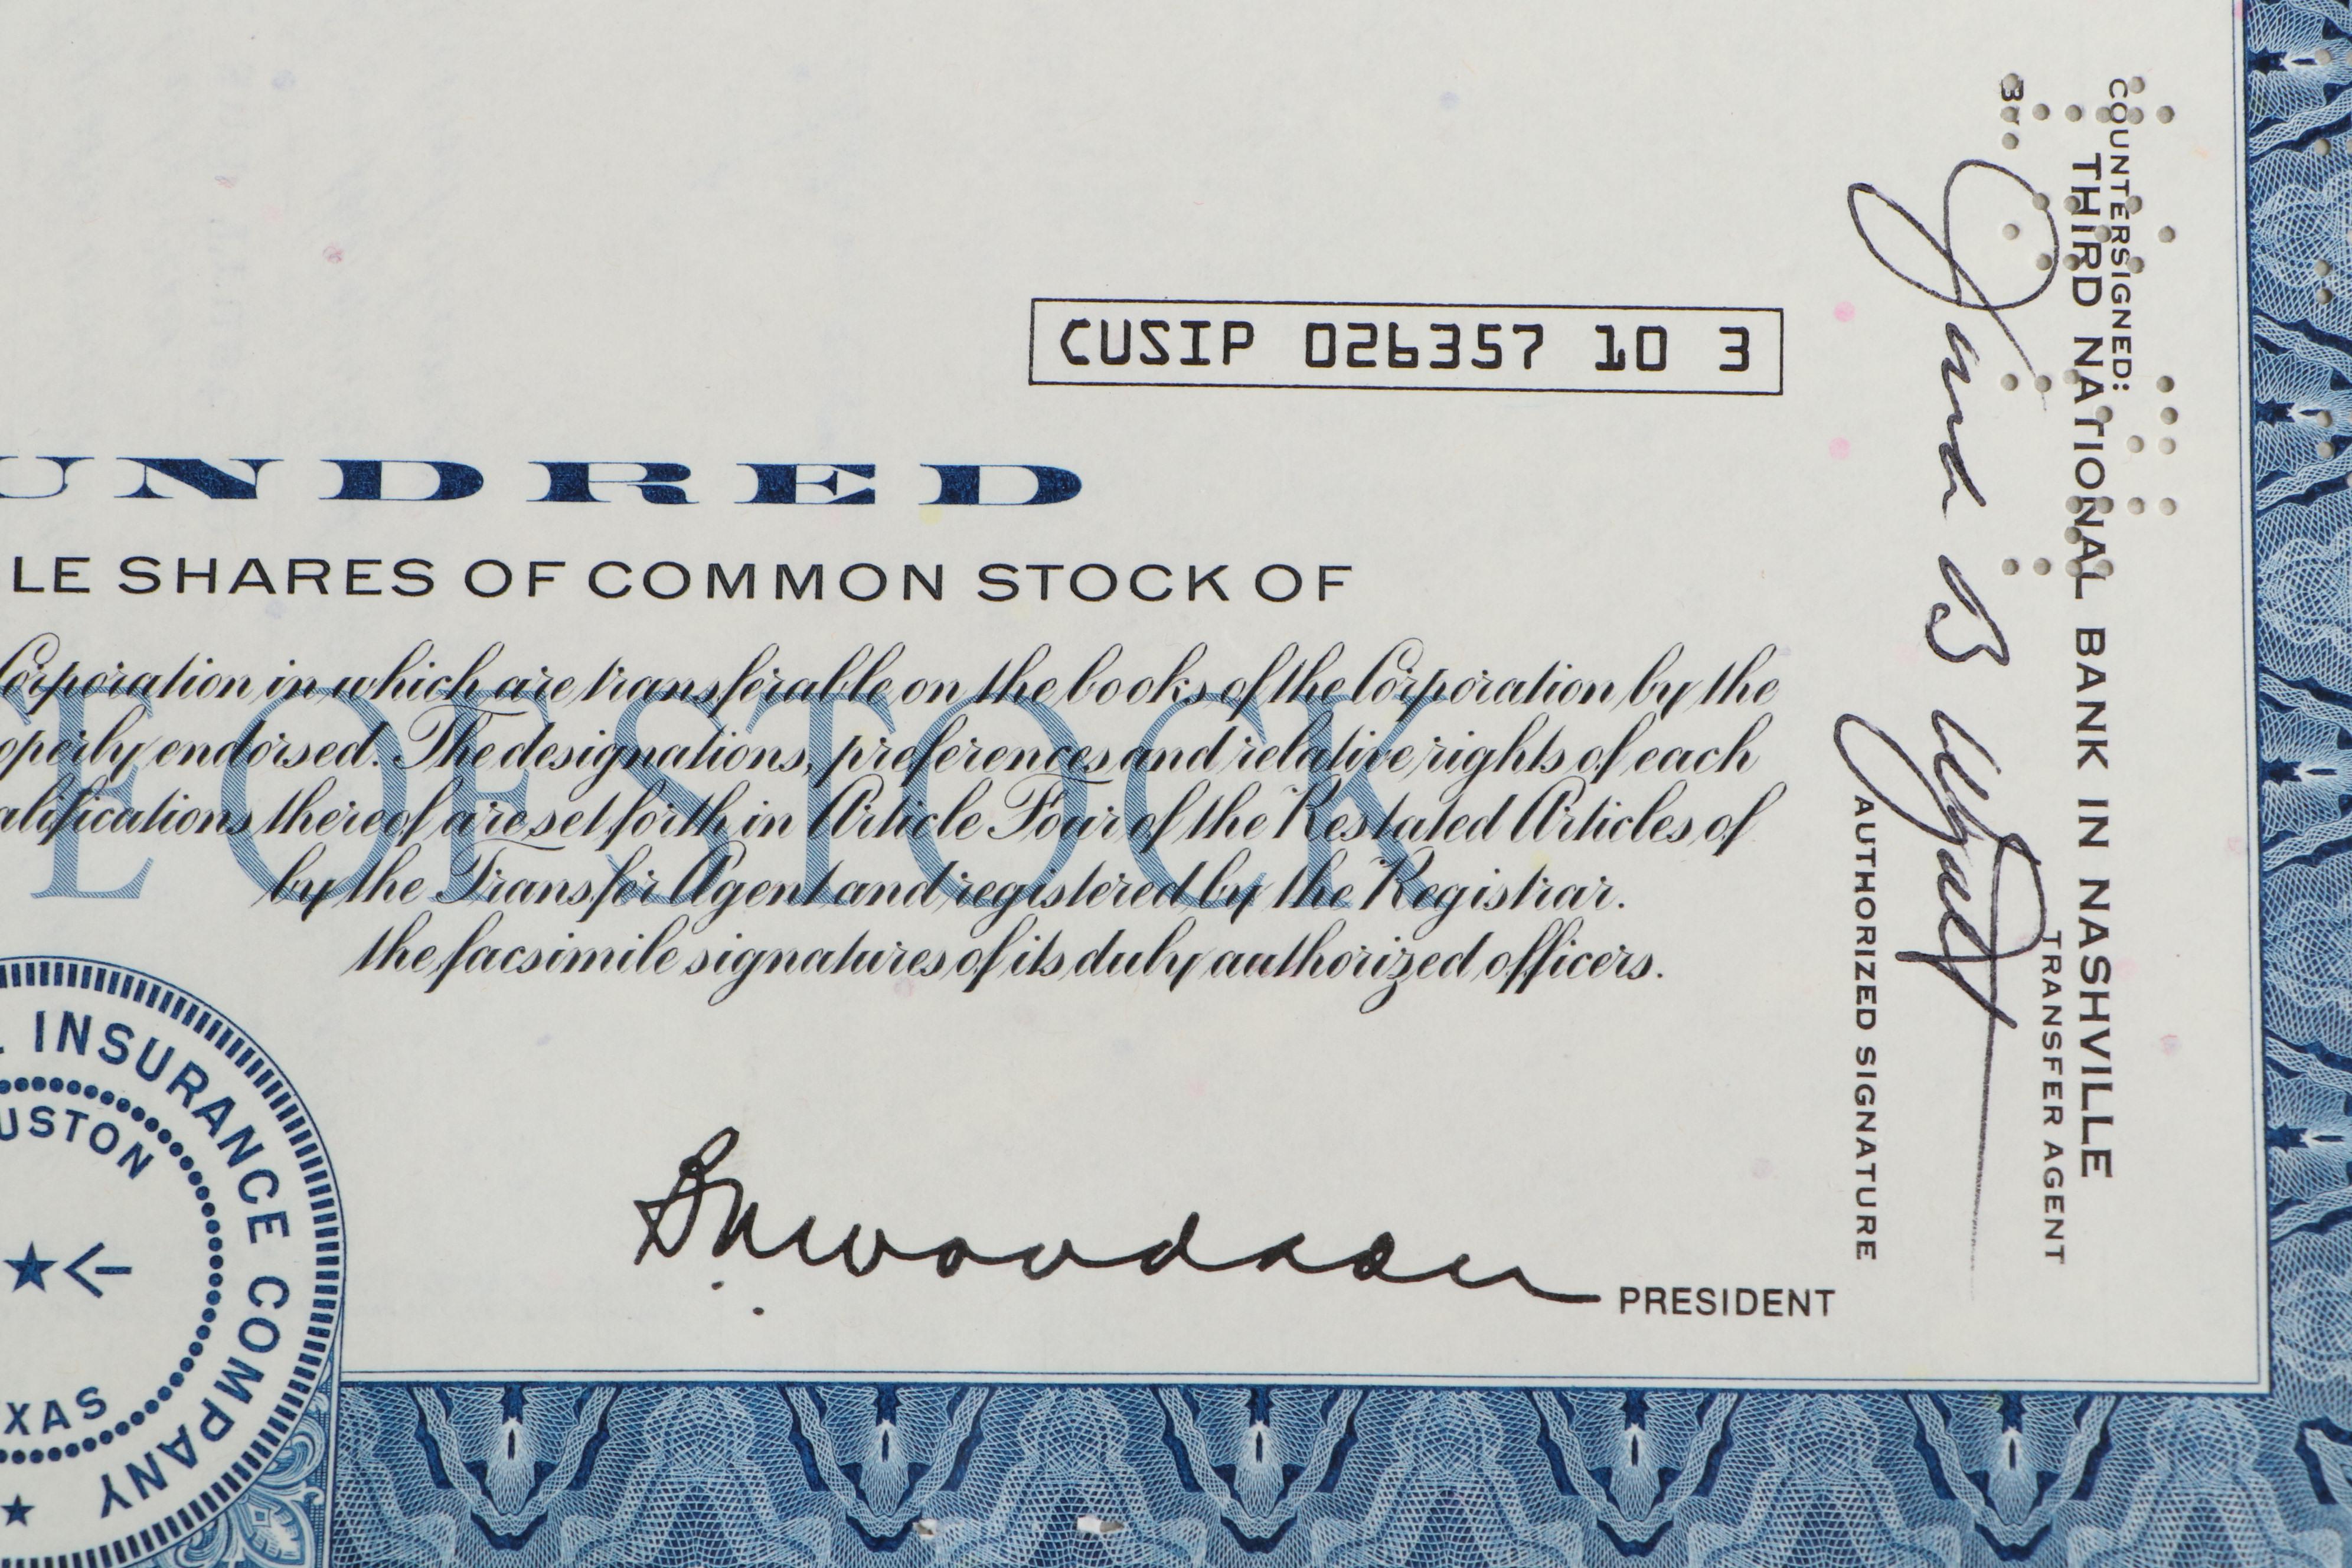 CUSIP 026357 10 3
UNDRED
LE SHARES OF COMMON STOCK OF
Corporation in which are transferable on the books of the Corporation by the
operly endorsed. The designations, preferences and relative rights of each
alifications thereof are set forth in Article Four of the Restated Articles of
by the Transfer Agent and registered by the Registrar.
the facsimile signatures of its duly authorized officers.
E OF STOCK
INSURANCE COMPANY
USTON
XAS
PRESIDENT
COUNTERSIGNED:
THIRD NATIONAL BANK IN NASHVILLE
TRANSFER AGENT
AUTHORIZED SIGNATURE